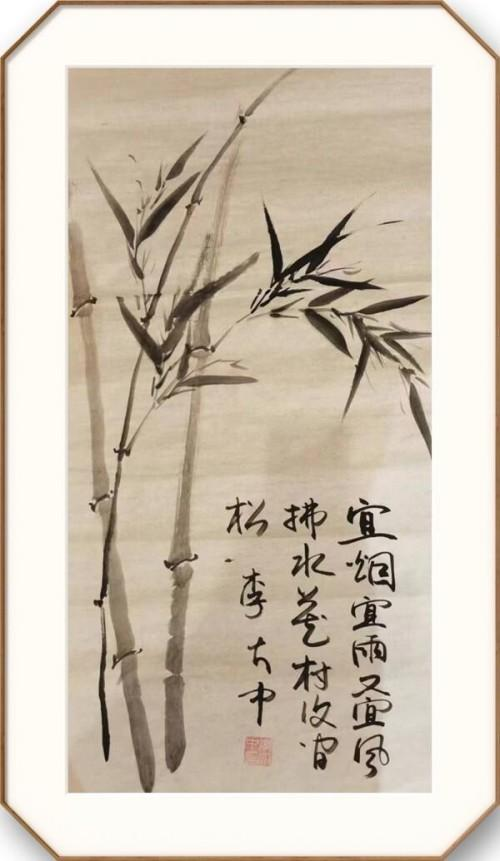 宜烟宜雨又宜风
拂水藏村复间
松 李大中